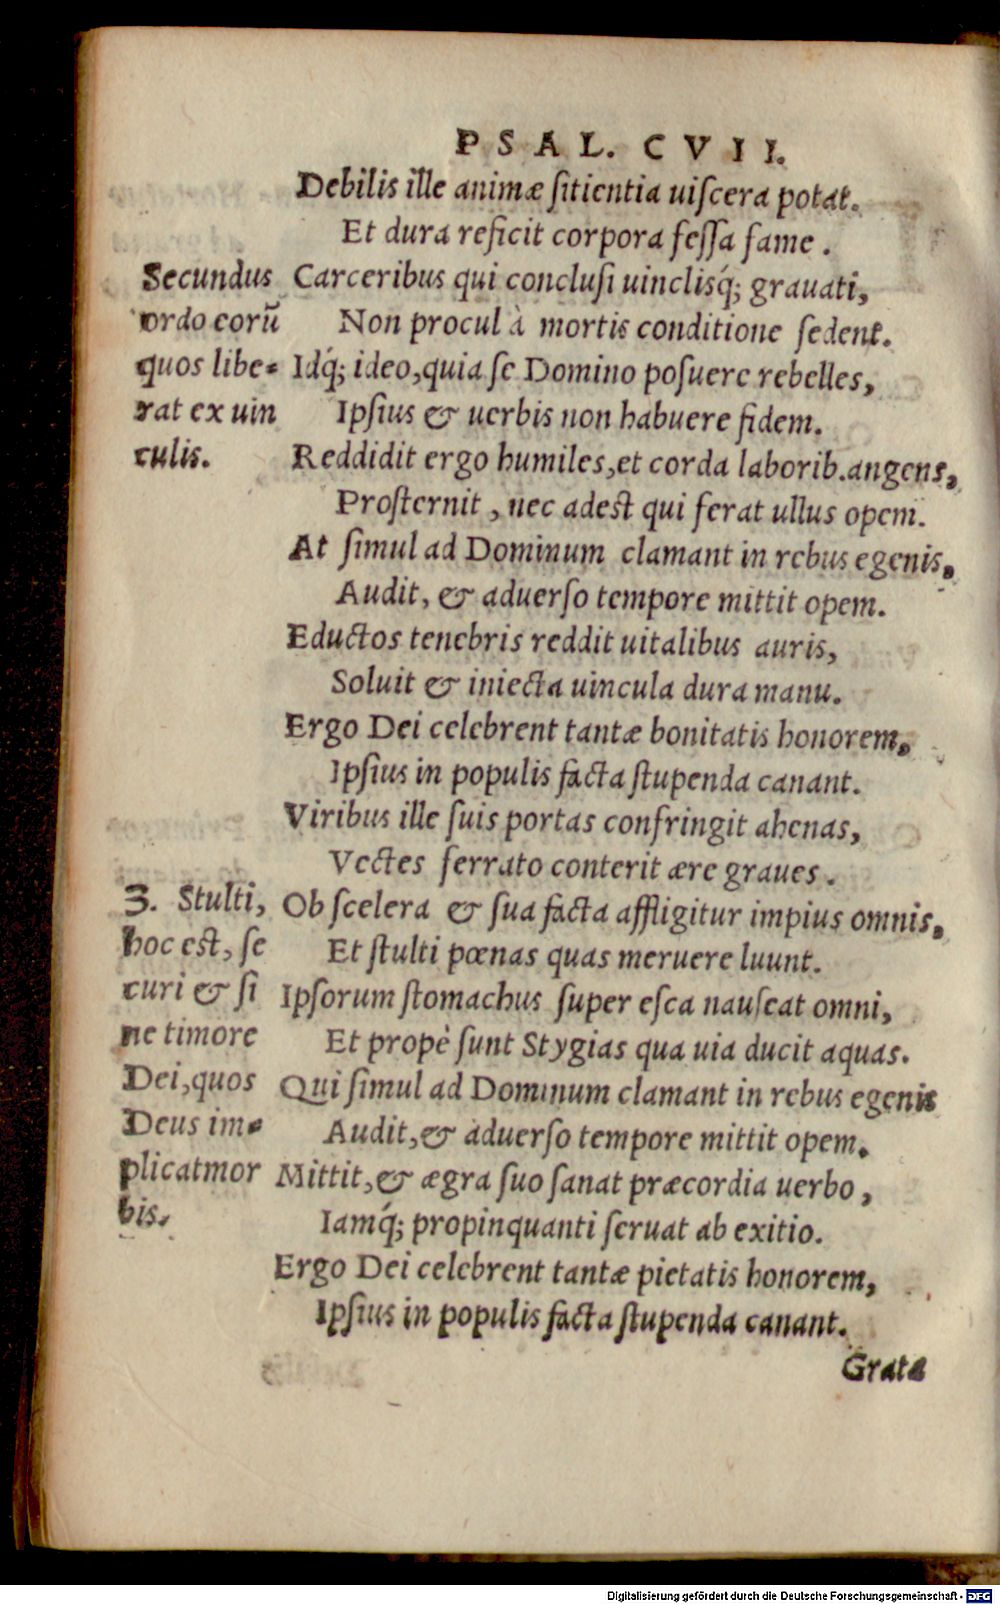 PSAL. CVII.
Debilis ille animæ ſitientia uiſcera potat.
Et dura reficit corpora feſſa fame.
Secundus
ordo eorũ
quos libe-
rat ex uin
culis.
Carceribus qui concluſi uinclisq́; grauati,
Non procul à mortis conditione ſedent.
Idq́; ideo, quia ſe Domino poſuere rebelles,
Ipſius & uerbis non habuere fidem.
Reddidit ergo humiles, et corda laborib. angens,
Proſternit, nec adest qui ferat ullus opem.
At ſimul ad Dominum clamant in rebus egenis,
Audit, & aduerſo tempore mittit opem.
Eductos tenebris reddit uitalibus auris,
Soluit & iniecta uincula dura manu.
Ergo Dei celebrent tantæ bonitatis honorem,
Ipſius in populis facta ſtupenda canant.
Viribus ille ſuis portas confringit ahenas,
Vectes ferrato conterit ære graues.
3. Stulti,
hoc est, ſe
curi & ſi
ne timore
Dei, quos
Deus im-
plicat mor
bis.
Ob ſcelera & ſua facta affligitur impius omnis,
Et ſtulti pœnas quas meruere luunt.
Ipſorum ſtomachus ſuper eſca nauſeat omni,
Et propè ſunt Stygias qua uia ducit aquas.
Qui ſimul ad Dominum clamant in rebus egenis
Audit, & aduerſo tempore mittit opem.
Mittit, & ægra ſuo ſanat præcordia uerbo,
Iamq́; propinquanti ſeruat ab exitio.
Ergo Dei celebrent tantæ pietatis honorem,
Ipſius in populis facta ſtupenda canant.
Grata
Digitalisierung gefördert durch die Deutsche Forschungsgemeinschaft - DFG